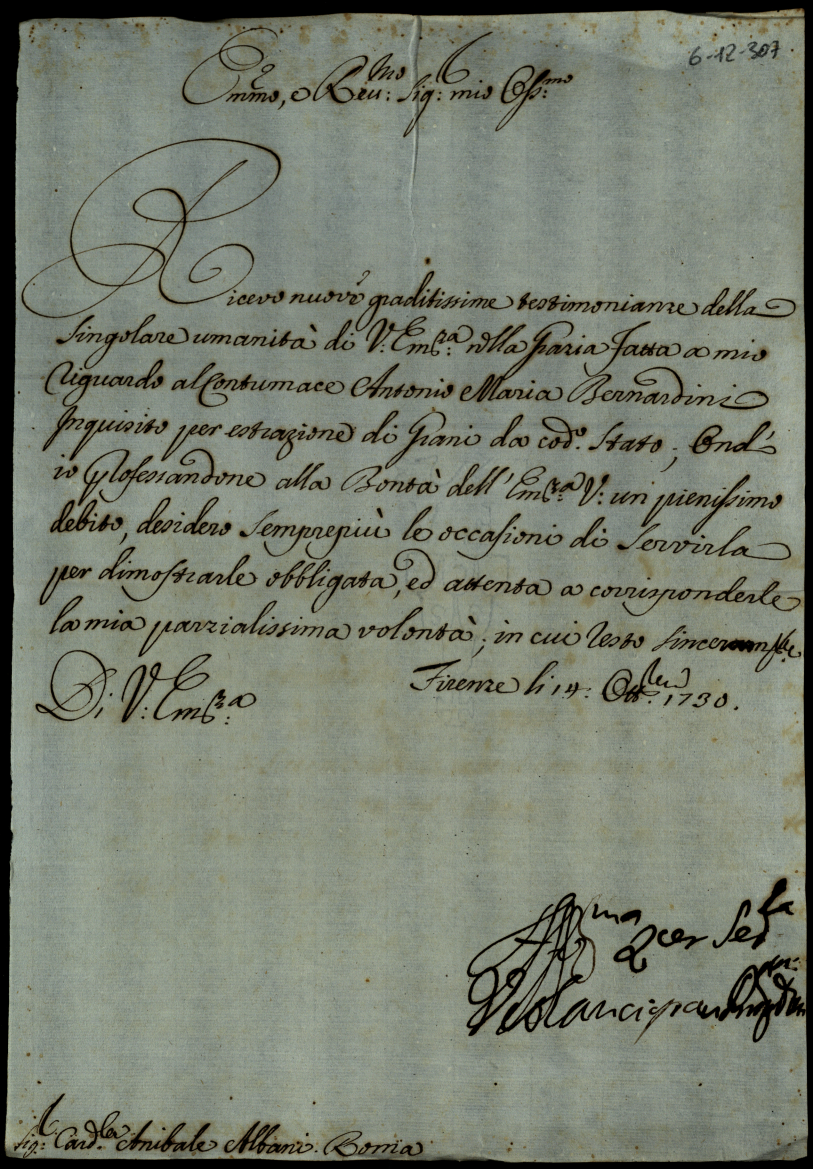 6-12-307
Emmo, e Reu:mo Sig:r mio Oss:mo
Ricevo nuove graditissime testimonianze della
singolare umanità di V: Emza: nella Grazia fatta a mio
riguardo al Contumace Antonio Maria Bernardini
Inquisito per estrazione di Grani da cod:o Stato; Ond'
io professandone alla Bontà dell'Emza: V: un pienissimo
debito, desidero semprepiù le occasioni di servirla
per dimostrarle obbligata, ed attenta a corrisponderle
la mia parzialissima volontà; in cui resto
Di V: Emza:
Firenze li 14: Ott:re 1730.
Aff:ma per Ser:la
Sig:r Card:le Anibale Albani. Roma